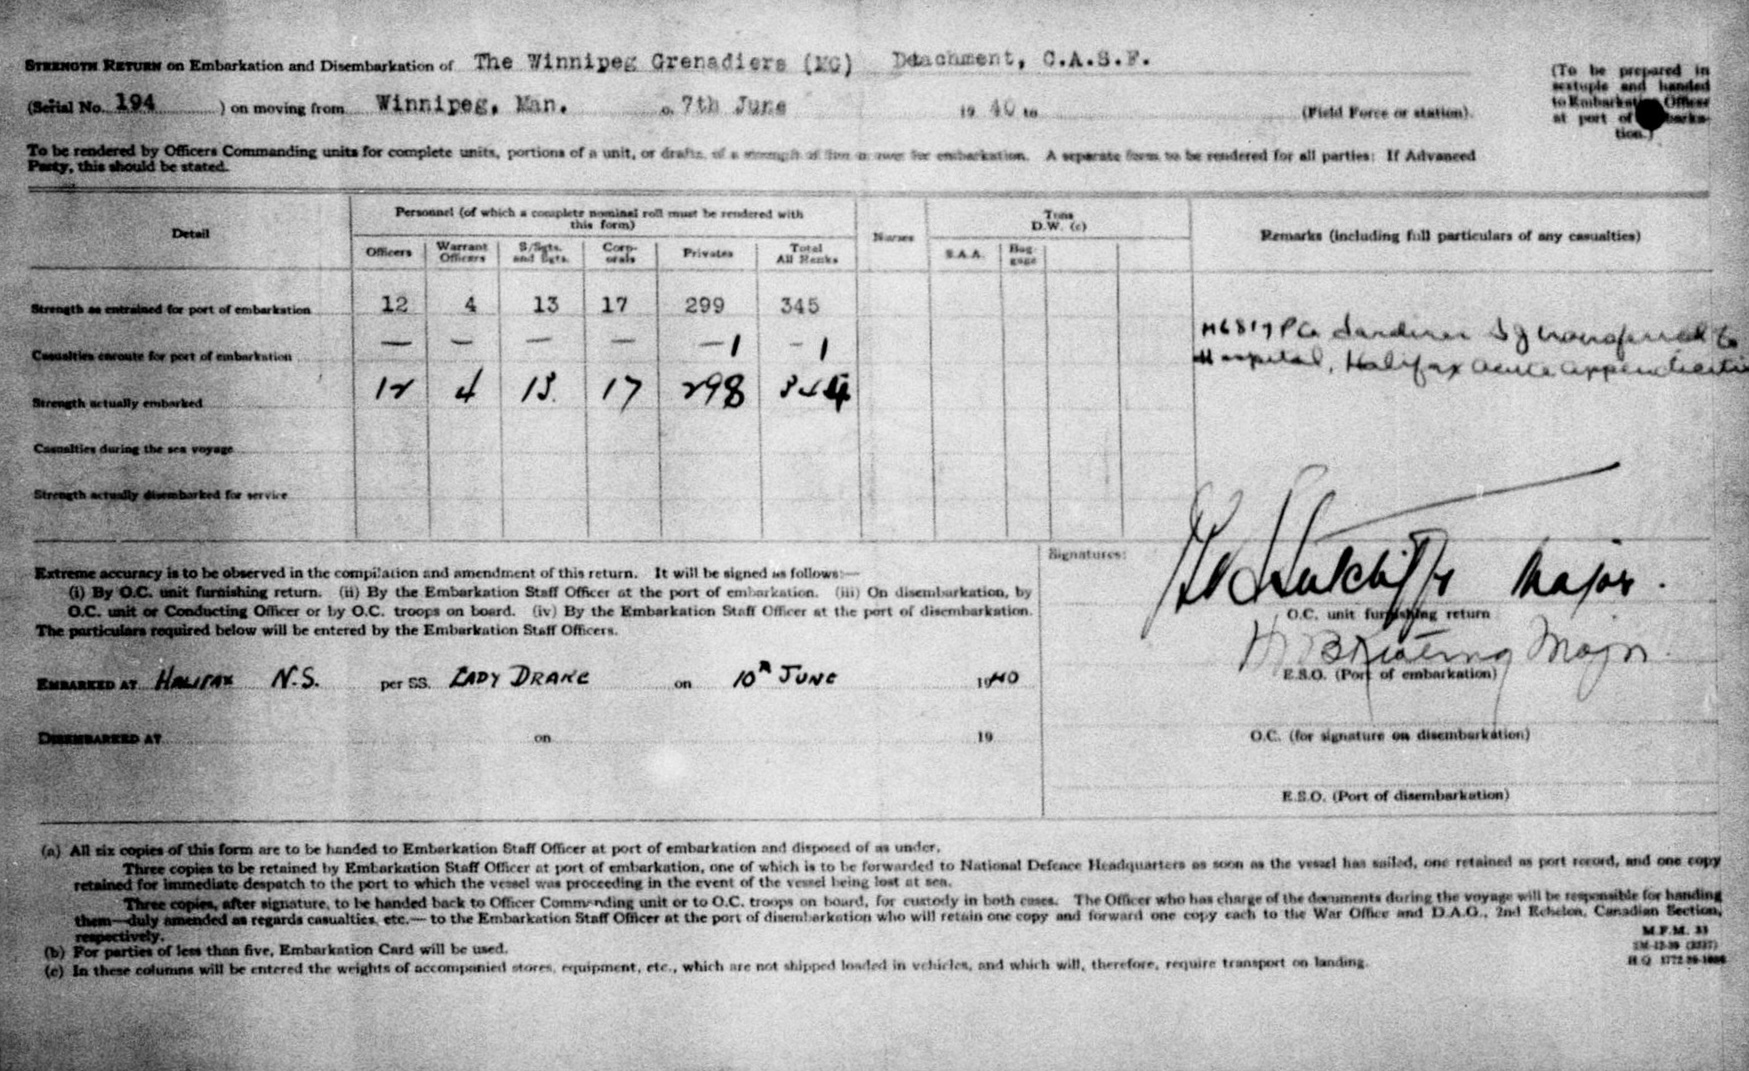 STRENGTH RETURN on Embarkation and Disembarkation of The Winnipeg Grenadiers (MG) Detachment, C.A.S.F.
(Serial No. 194 ) on moving from Winnipeg, Man. o. 7th June 19 40 to (Field Force or station).
(To be prepared in sextuple and handed to Embarkation Officer at port of Embarkation.)
To be rendered by Officers Commanding units for complete units, portions of a unit, or drafts, of a strength of five or over for embarkation. A separate form to be rendered for all parties: If Advanced
Party, this should be stated.
Detail
Personnel (of which a complete nominal roll must be rendered with
this form)
Officers
Warrant Officers
S/Sgts. and Sgts.
Corp- orals
Privates
Total All Ranks
Nurses
Tons D.W. (c)
S.A.A.
Bag- gage
Remarks (including full particulars of any casualties)
Strength as entrained for port of embarkation 12 4 13 17 299 345
Casualties enroute for port of embarkation — — — — —1 —1
H6817 Pte Gardiner transferred to
Hospital, Halifax acute appendicitis
Strength actually embarked 12 4 13 17 298 344
Casualties during the sea voyage
Strength actually disembarked for service
Extreme accuracy is to be observed in the compilation and amendment of this return. It will be signed as follows:—
(i) By O.C. unit furnishing return. (ii) By the Embarkation Staff Officer at the port of embarkation. (iii) On disembarkation, by
O.C. unit or Conducting Officer or by O.C. troops on board. (iv) By the Embarkation Staff Officer at the port of disembarkation.
The particulars required below will be entered by the Embarkation Staff Officers.
Signatures:
Sutcliffe Major.
O.C. unit furnishing return
Keating Major
E.S.O. (Port of embarkation)
EMBARKED AT HALIFAX N.S. per SS. LADY DRAKE on 10th JUNE 1940
DISEMBARKED AT on 19
O.C. (for signature on disembarkation)
E.S.O. (Port of disembarkation)
(a) All six copies of this form are to be handed to Embarkation Staff Officer at port of embarkation and disposed of as under.
Three copies to be retained by Embarkation Staff Officer at port of embarkation, one of which is to be forwarded to National Defence Headquarters as soon as the vessel has sailed, one retained as port record, and one copy
retained for immediate despatch to the port to which the vessel was proceeding in the event of the vessel being lost at sea.
Three copies, after signature, to be handed back to Officer Commanding unit or to O.C. troops on board, for custody in both cases. The Officer who has charge of the documents during the voyage will be responsible for handing
them—duly amended as regards casualties, etc.— to the Embarkation Staff Officer at the port of disembarkation who will retain one copy and forward one copy each to the War Office and D.A.G., 2nd Echelon, Canadian Section,
respectively.
(b) For parties of less than five, Embarkation Card will be used.
(c) In these columns will be entered the weights of accompanied stores, equipment, etc., which are not shipped loaded in vehicles, and which will, therefore, require transport on landing.
M.F.M. 33
H.Q.